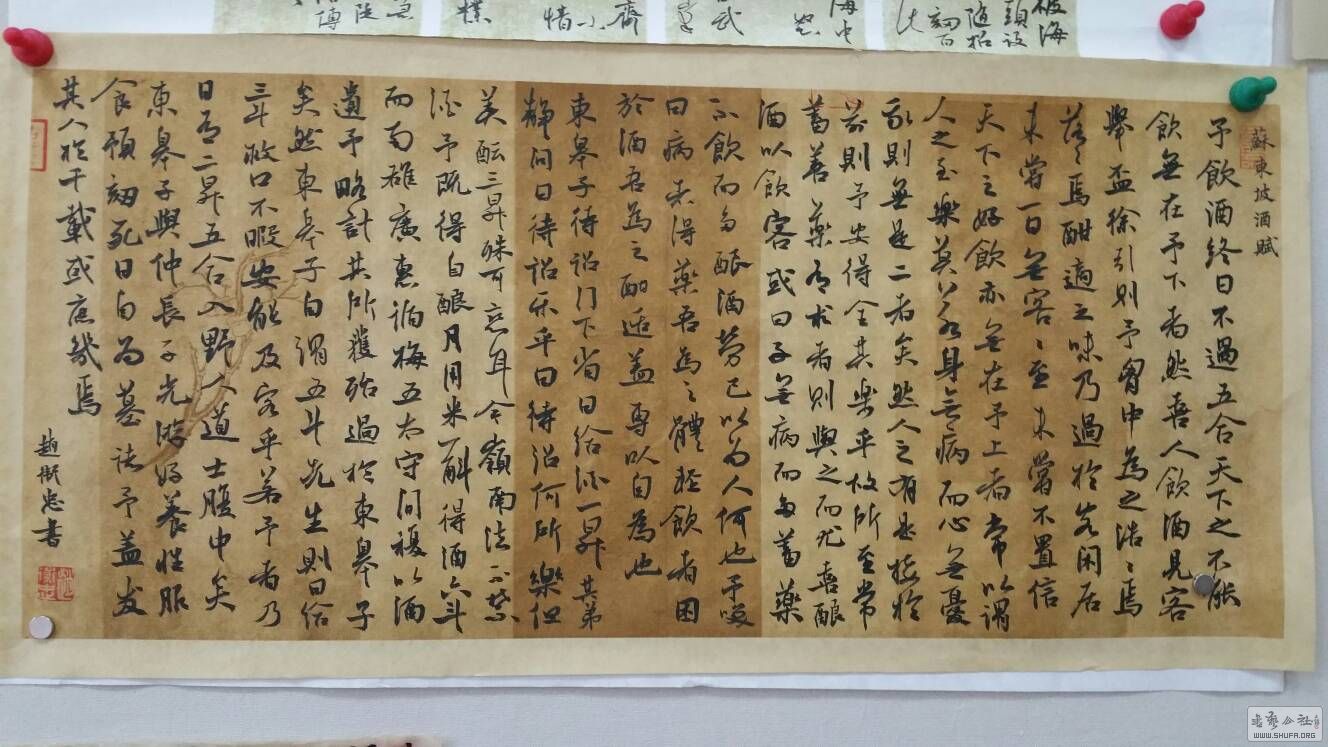 蘇東坡酒賦
予飲酒終日不過五合天下之不能
飲無在予下者然喜人飲酒見客
舉盃徐引則予胷中為之浩〻焉
落〻焉酣適之味乃過於客閑居
未嘗一日無客〻至未嘗不置信
天下之好飲亦無在予上者常以謂
人之至樂莫若身無病而心無憂
我則無是二者矣然人之有是接於
前則予安得全其樂乎故所至常
蓄善藥有求者則與之而尤喜釀
酒以飲客或曰子無病而多蓄藥
不飲而多釀酒勞己以為人何也予笑
曰病者得藥吾為之體輕飲者困
於酒吾為之酣適盖專以自為也
東皋子待詔門下省日給酒一昇其弟
靜問曰待詔樂乎曰待詔何所樂但
美醖三昇殊可戀耳今嶺南法不禁
酒予既得自釀月用米一斛得酒六斗
而南雄廣惠循梅五太守間復以酒
遺予略計其所獲殆過於東皋子
矣然東皋子自謂五斗先生則日給
三斗救口不暇安能及客乎若予者乃
日有二昇五合入野人道士腹中矣
東皋子與仲長子光游好養性服
食預刻死日自為墓誌予盖友
其人於千載或庶幾焉
忠書
書藝公社
WWW.SHUFA.ORG